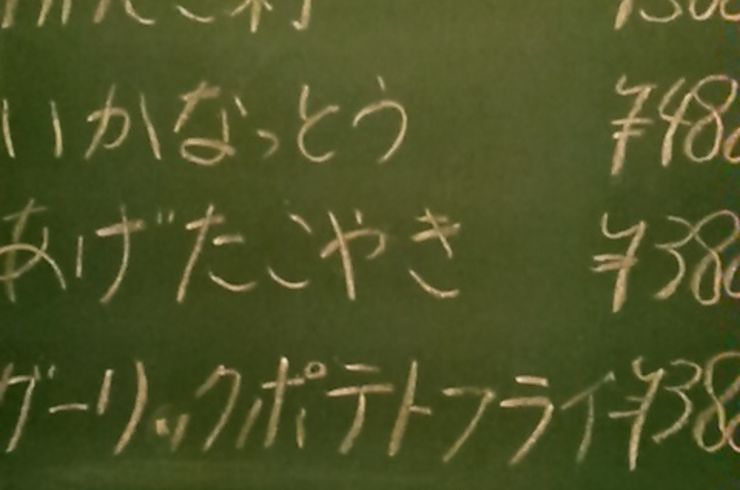 いかなっとう ¥480
あげたこやき ¥380
ガーリックポテトフライ ¥380